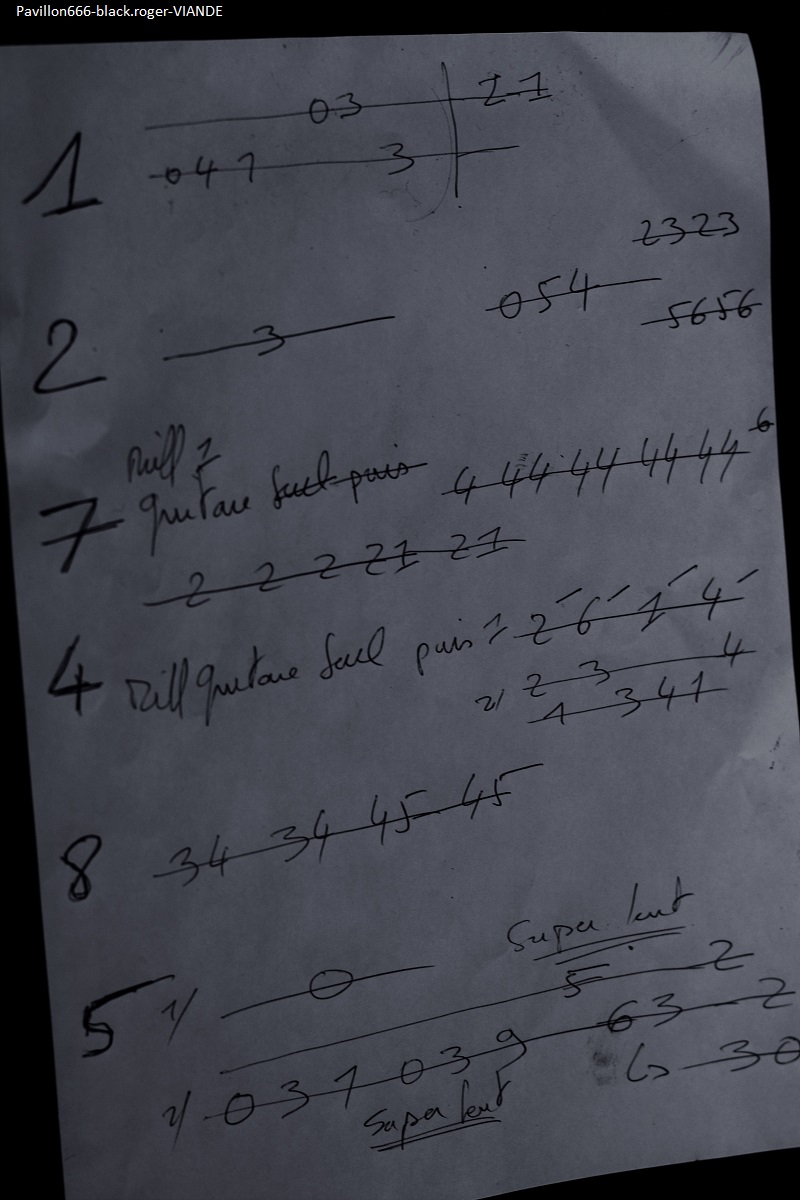 Pavillon666-black.roger-VIANDE
03 21
1
041 3
2323
2 3 054
5656
7 guitare Seul puis 4 44 44 44 44 6
2 2 2 21 21
4 guitare Seul puis 1 2 6 1 4
2/ 2 3 4
1 3 4 1
8 34 34 45 45
Super lent
5 1/ 0
5 2
2/ 0 3 1 0 3 9 63 2
30
Super lent